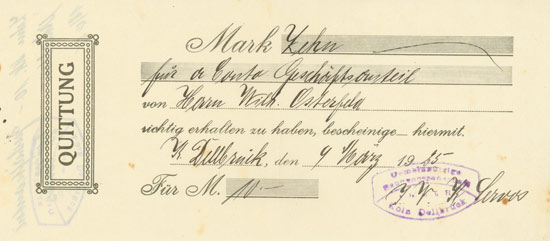 QUITTUNG
Mark Zehn
für a Conto Geschäftsanteil
von Herrn Wilh. Osterfeld
richtig erhalten zu haben, bescheinige hiermit.
Dellbrück, den 9 März 19
Für M. 10.—
Gemeinnützige
Köln Dellbrück
Servos